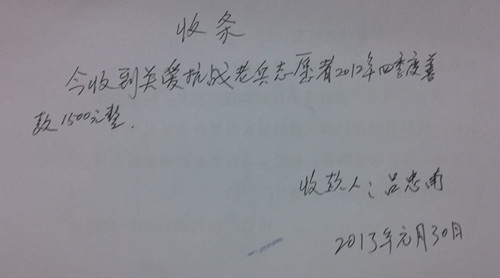 收条
今收到关爱抗战老兵志愿者2012年四季度善
款1500元整.
收款人:吕忠南
2013年元月30日